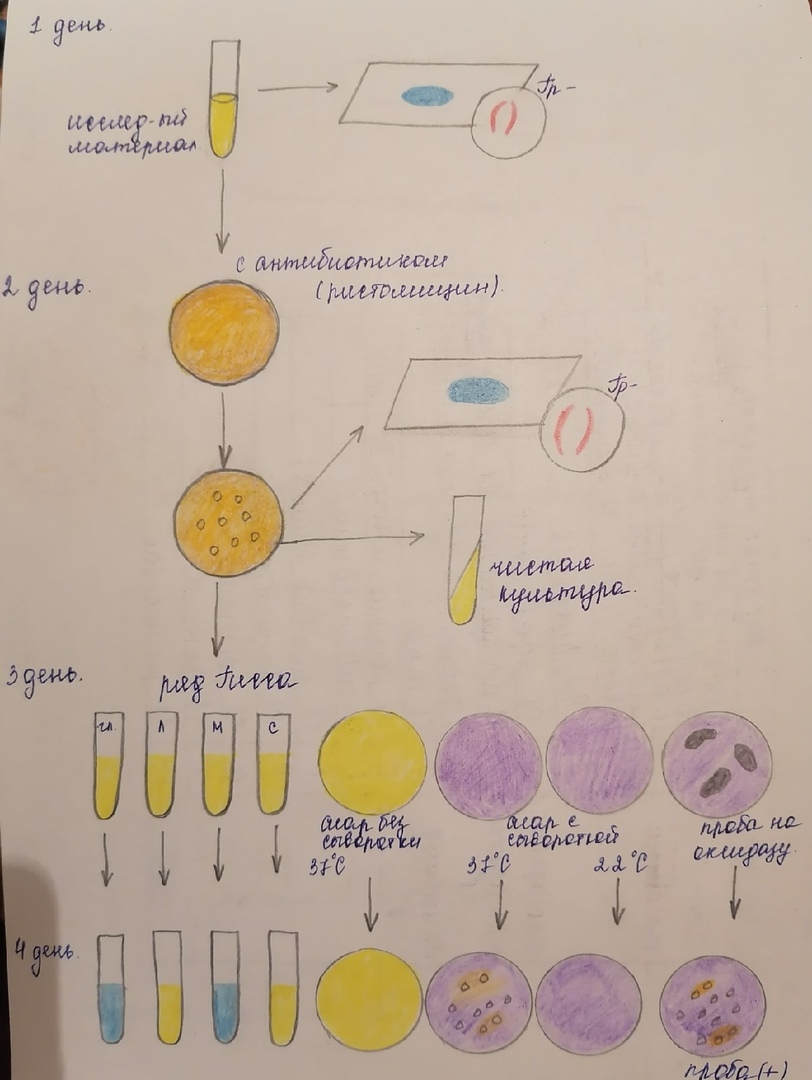 1 день.
исслед-ый
материал
Гр-
с антибиотиком
(ристомицин).
2 день.
Гр-
чистая
культура.
3 день.
ряд Гисса
гл.
Л
М
С
агар без
сыворотки
37°С
агар с
сывороткой
37°С
22°С
проба на
оксидазу.
4 день.
проба (+)